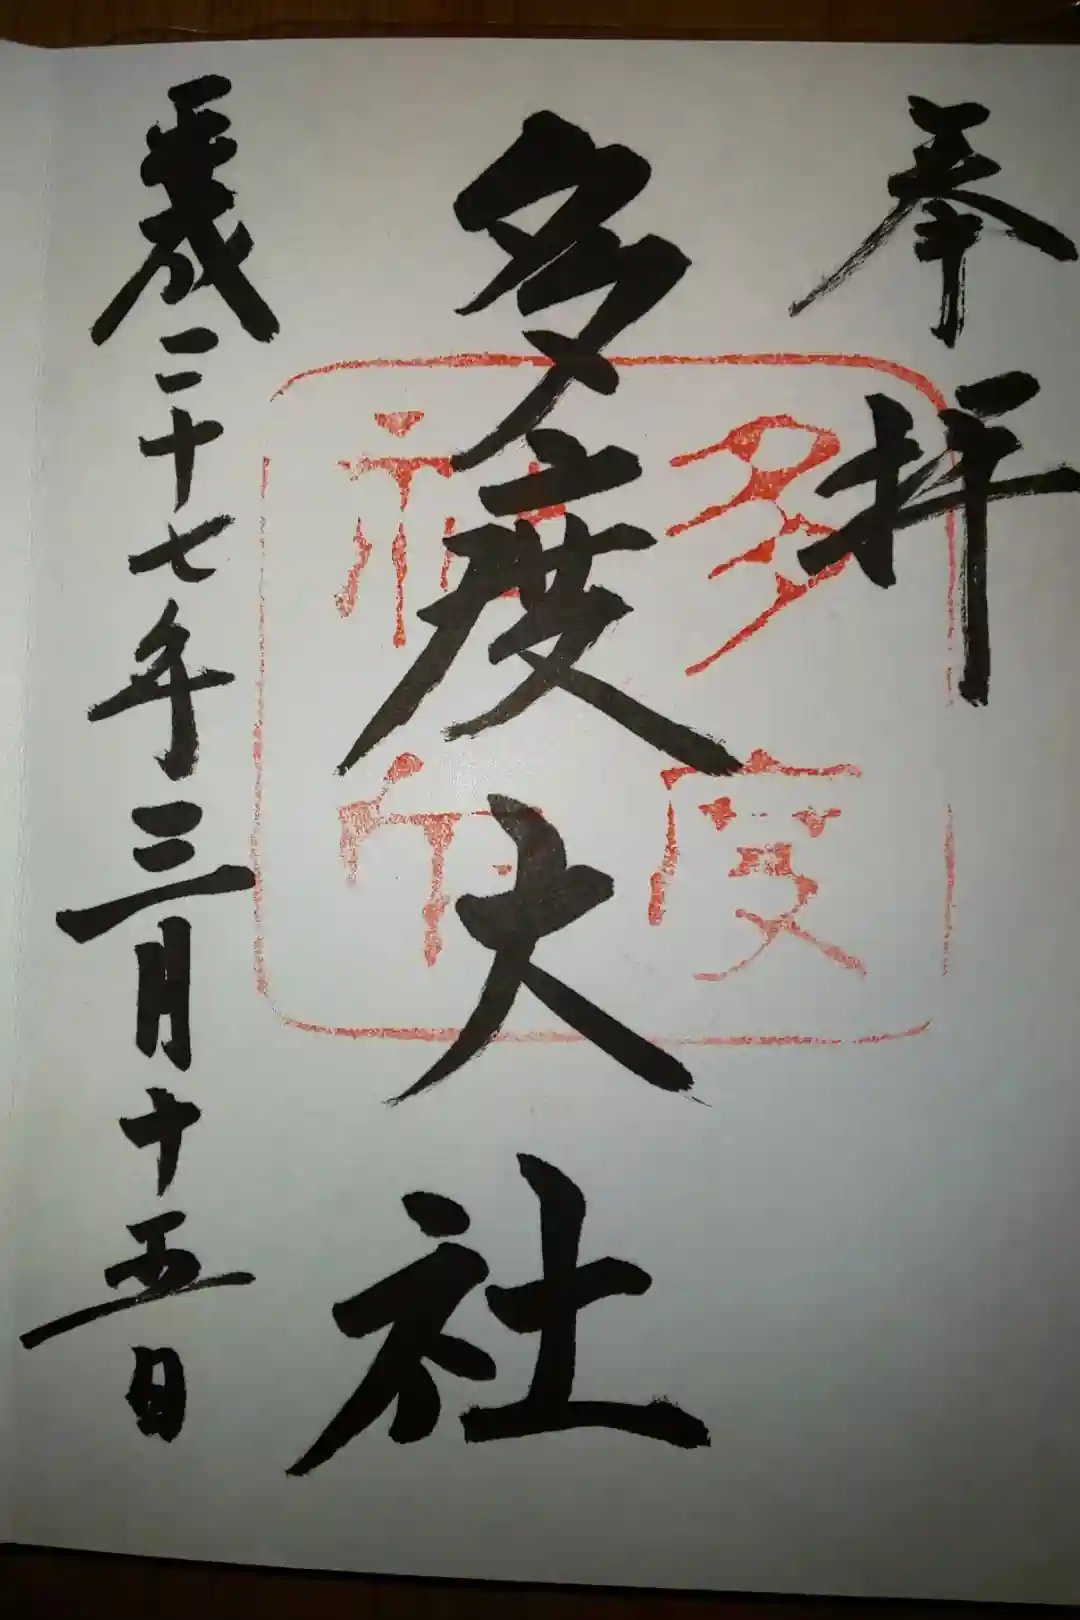 奉拝
多度大社
多度
神印
平成二十七年三月十五日